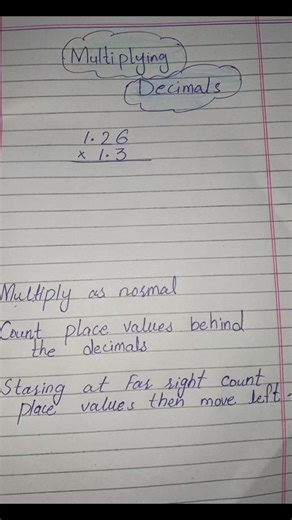 Multiplying
Decimals
1.26
× 1.3
Multiply as normal
Count place values behind
the decimals
Staring at Far right count
place values then move left.